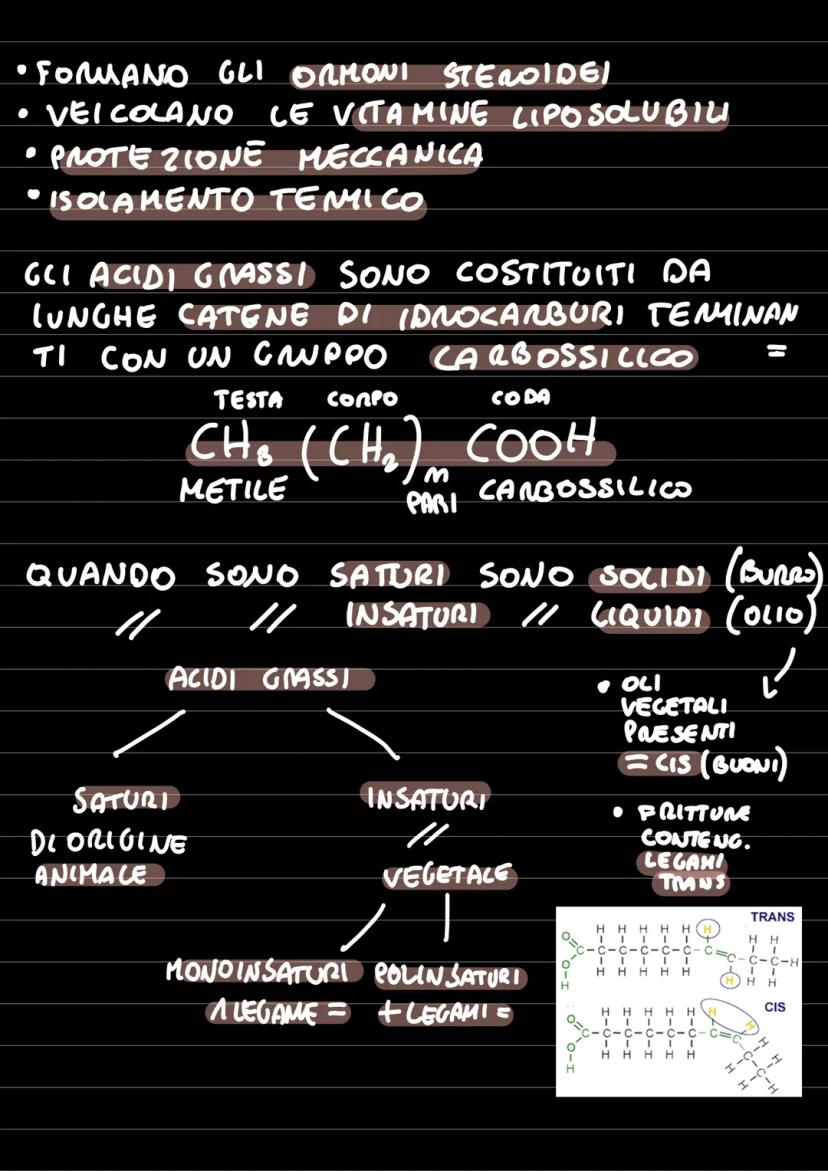 • FORMANO GLI ORMONI STEROIDEI
• VEICOLANO LE VITAMINE LIPOSOLUBILI
• PROTEZIONE MECCANICA
• ISOLAMENTO TERMICO
GLI ACIDI GRASSI SONO COSTITUITI DA
LUNGHE CATENE DI IDROCARBURI TERMINAN
TI CON UN GRUPPO CARBOSSILICO =
TESTA CORPO CODA
CH₃ (CH₂)n COOH
METILE PARI CARBOSSILICO
QUANDO SONO SATURI SONO SOLIDI (BURRO)
// // INSATURI // LIQUIDI (OLIO)
ACIDI GRASSI
SATURI
DI ORIGINE
ANIMALE
INSATURI
//
VEGETALE
MONOINSATURI
1 LEGAME =
POLINSATURI
+ LEGAMI =
• OLI
VEGETALI
PRESENTI
= CIS (BUONI)
• FRITTURE
CONTENG.
LEGAMI
TRANS
TRANS
H H H H H H H H
O C-C-C-C-C-C-C=C-C-C-H
O H H H H H H H H
H
CIS
H H H H H H H
O C-C-C-C-C-C-C=C
O H H H H H C
H H C H
H H